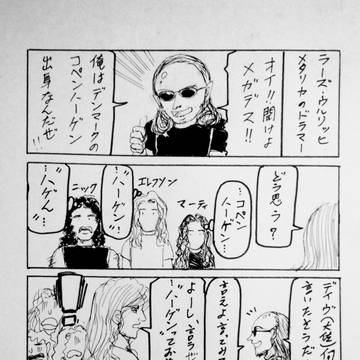 ラーズ・ウルリッヒ
メタリカのドラマー
オイ!!聞けよ
メガデス!!
俺はデンマークの
コペンハーゲン
出身なんだぜ!!
どう思う?
…コペン
ハーゲン…
マーティ
エレフソン
"ハーゲン"…
ニック
…"ハゲん"…
言いたそうだ
言えよ
よーし、言うぜ
"ハーゲン"って
!